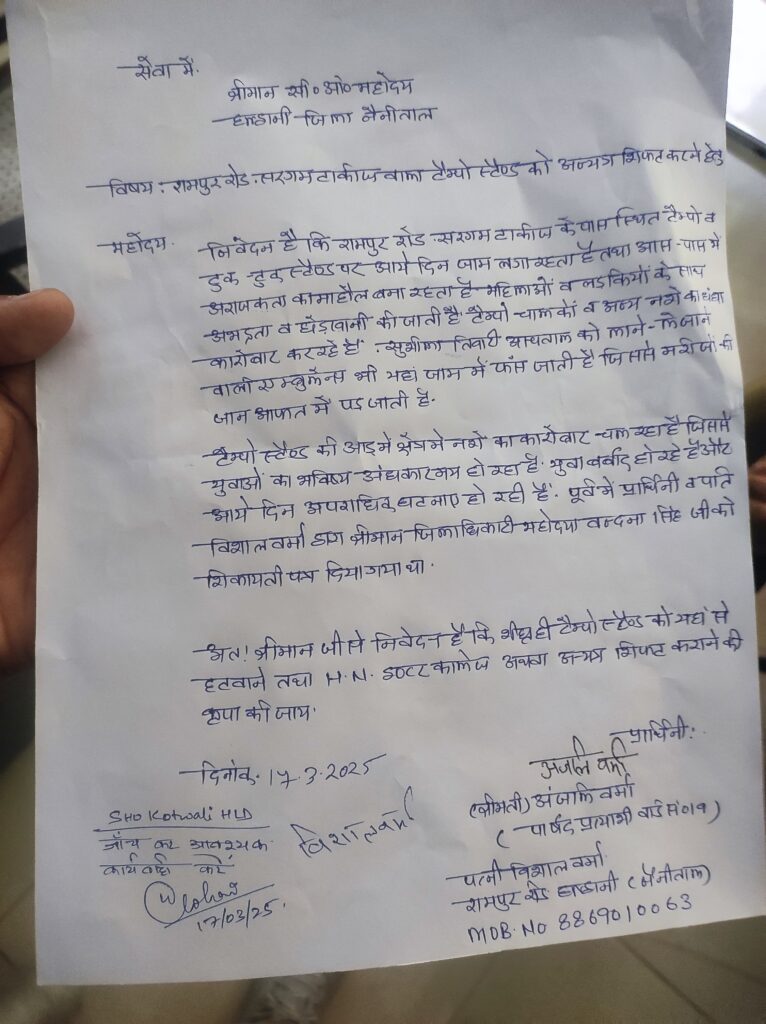 सेवा में.
श्रीमान सी०ओ०महोदय
हल्द्वानी जिला नैनीताल
विषय: रामपुर रोड सरगम टाकीज वाला टैम्पो स्टैण्ड को अन्यत्र शिफ्ट करने हेतु
महोदय.
निवेदन है कि रामपुर रोड सरगम टाकीज के पास स्थित टैम्पो व
टुक टुक स्टैण्ड पर आये दिन जाम लगा रहता है तथा आस-पास में
अराजकता का माहौल बना रहता है महिलाओं व लडकियों के साथ
अभद्रता व छेड़खानी की जाती है. टैम्पो चालकों व अन्य नशे का धंधा
कारोबार कर रहे हैं. सुशीला तिवारी अस्पताल को लाने-लेजाने
वाली एम्बुलेंस भी यहां जाम में फंस जाती है जिससे मरीजों की
जान आफत में पड जाती है.
टैम्पो स्टैण्ड की आड़ मे क्षेत्र मे नशे का कारोबार चल रहा है जिससे
युवाओं का भविष्य अंधकारमय हो रहा है. युवा बर्वाद हो रहे है और
आये दिन अपराधिक घटनाए हो रही हैं. पूर्व में प्रार्थिनी व पति
विशाल वर्मा द्वारा श्रीमान जिलाधिकारी महोदया वन्दना सिंह जी को
शिकायती पत्र दिया गया था.
अतः श्रीमान जी से निवेदन है कि शीघ्र ही टैम्पो स्टैण्ड को यहां से
हटवाने तथा H.N. इण्टर कालेज अथवा अन्यत्र शिफ्ट कराने की
कृपा की जाय.
दिनांक. 17.3.2025
प्रार्थिनी:
अंजलि वर्मा
(श्रीमती) अंजलि वर्मा
(पार्षद प्रत्याशी वार्ड सं०19)
पत्नी विशाल वर्मा
रामपुर रोड हल्द्वानी (नैनीताल)
MOB. No 8869010063
विशाल वर्मा
SHO Kotwali HLD
जाँच कर आवश्यक
कार्यवाही करें
17/03/25.